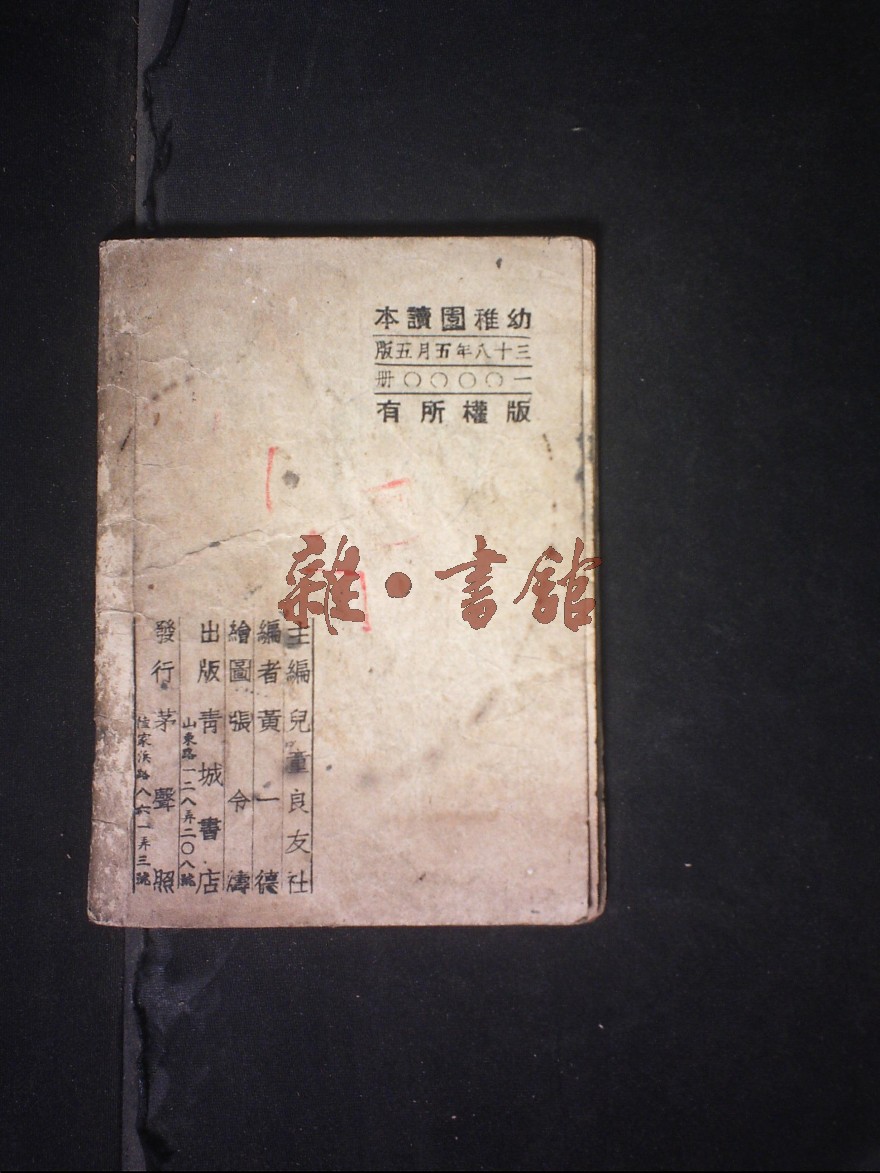 幼稚園讀本
三十八年五月五版
一〇〇〇〇册
版權所有
雜·書館
主編 兒童良友社
編者 黃一德
繪圖 張令濤
出版 青城書店
山東路一二八弄二〇八號
發行 茅聲熙
陸家浜路八六一弄三號